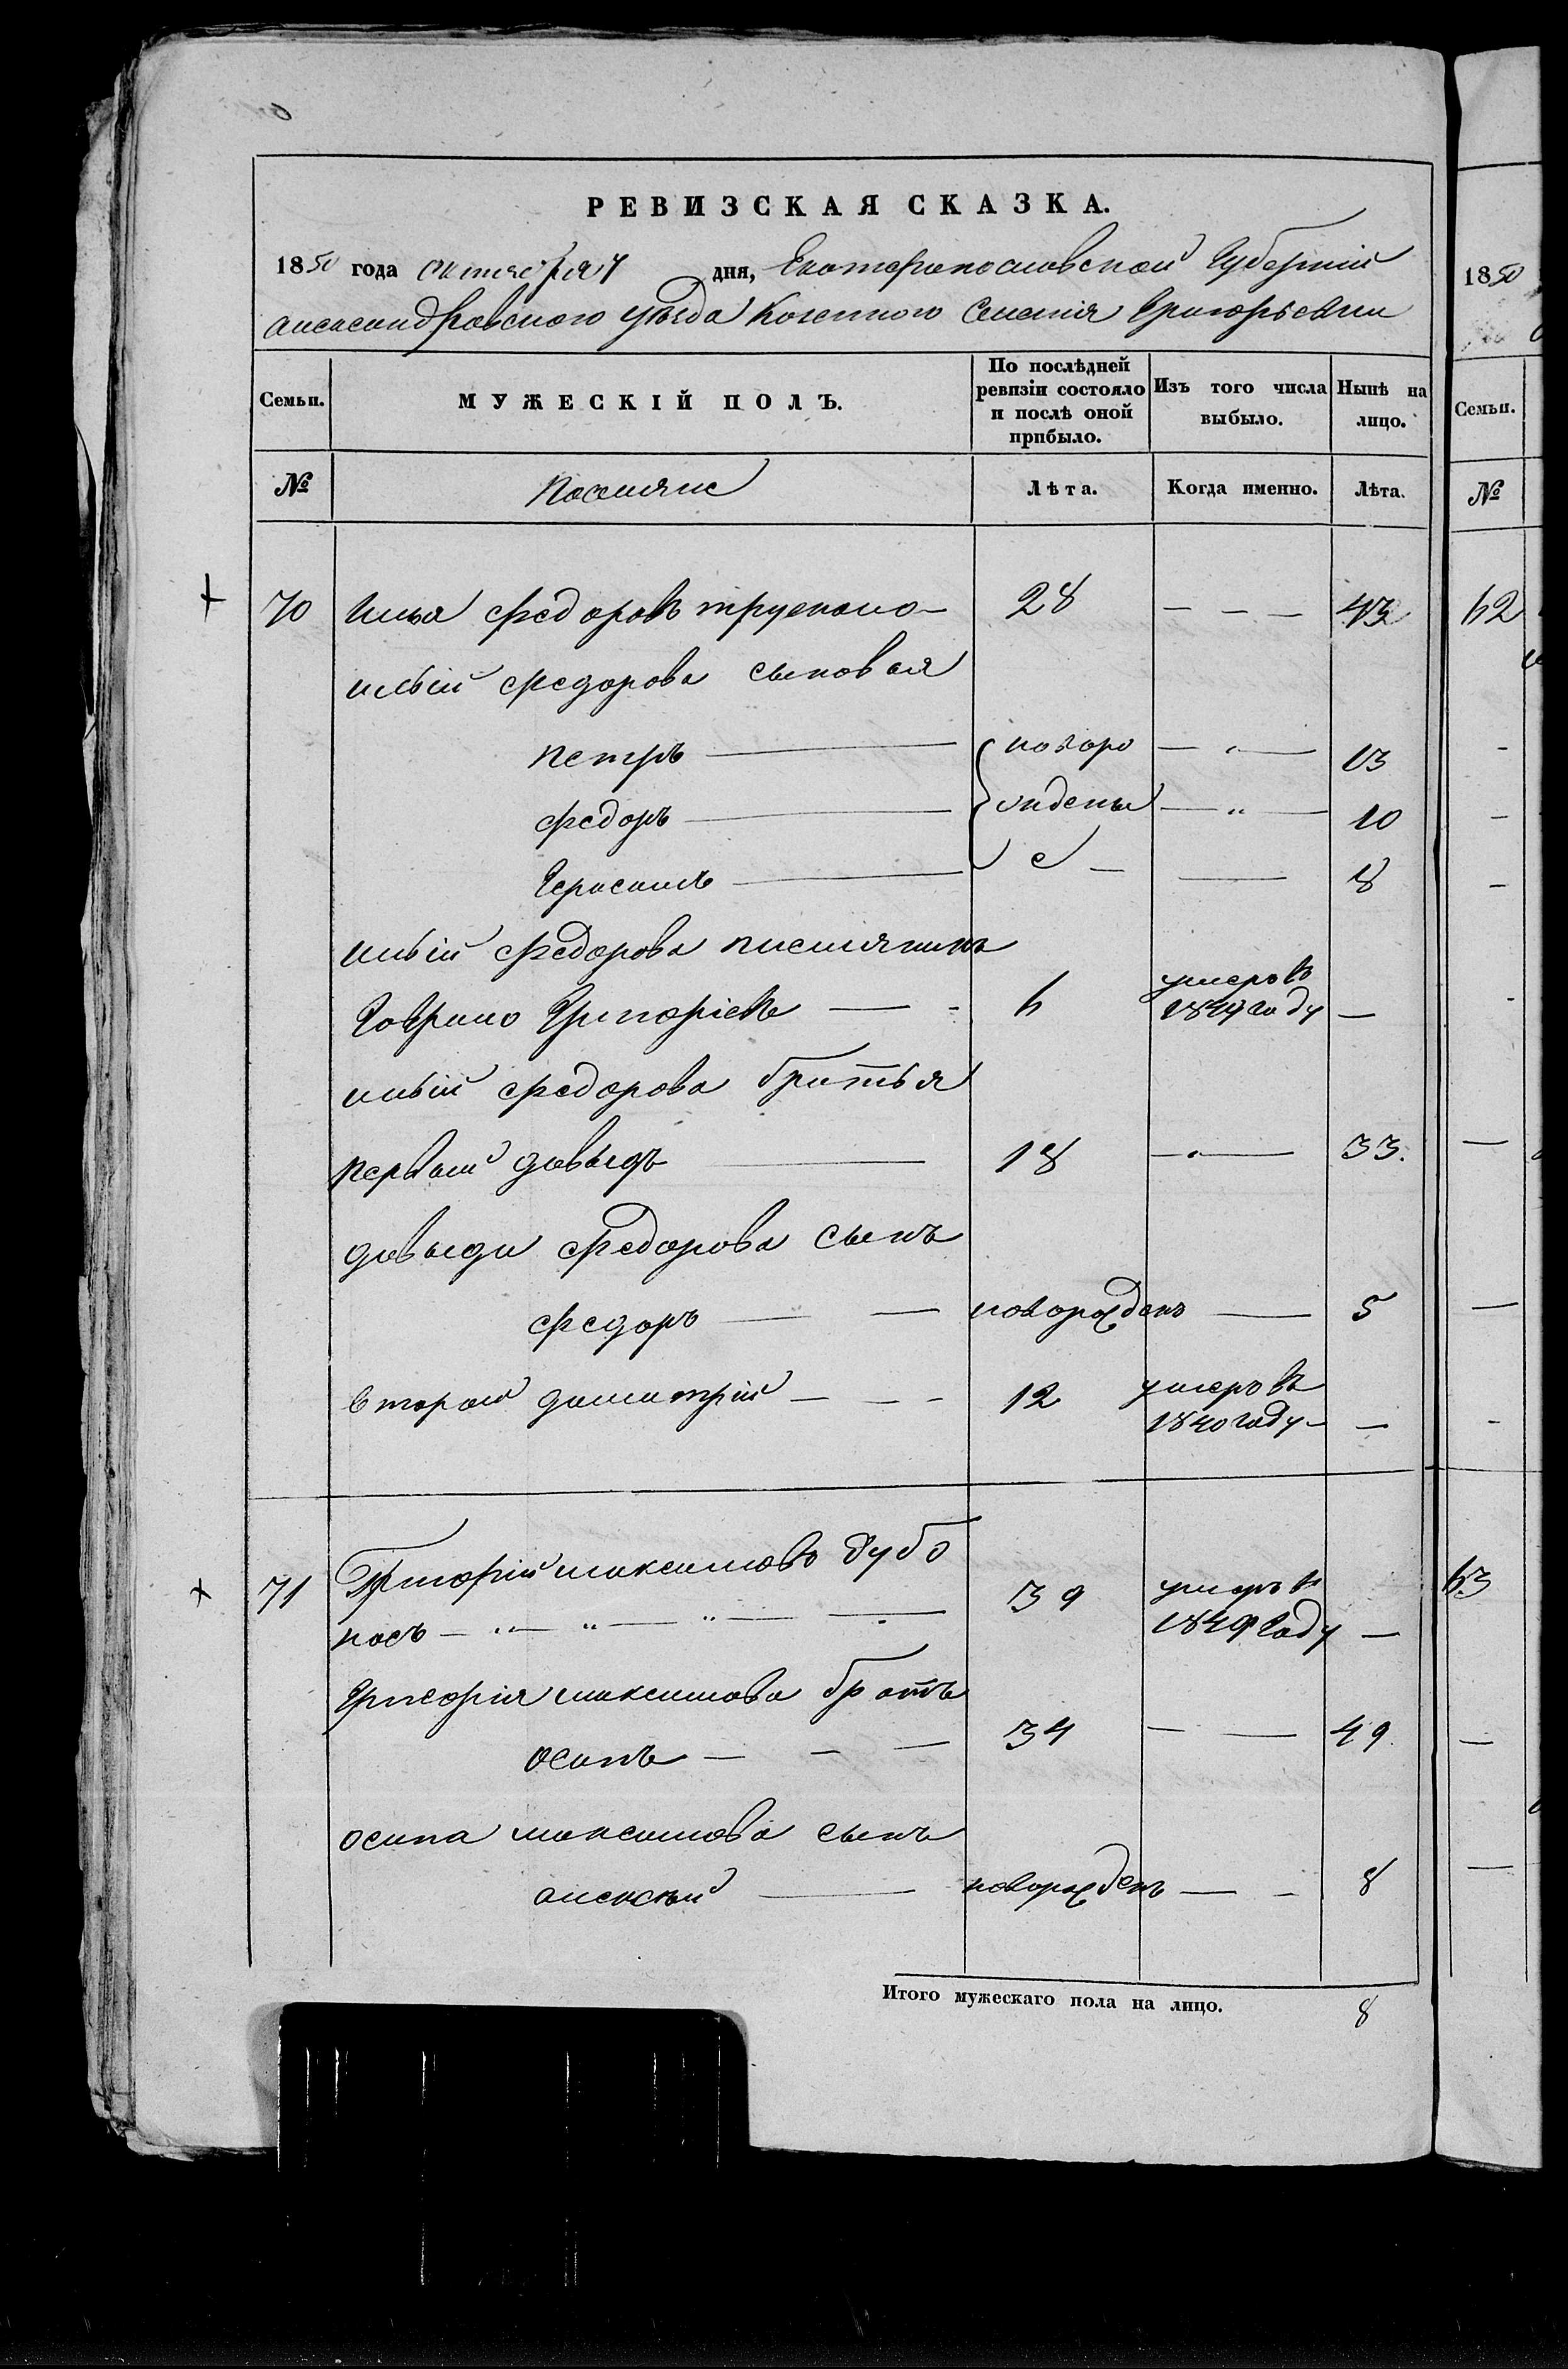 РЕВИЗСКАЯ СКАЗКА.
1850 года октября 7 дня, Екатеринославской Губернии
александровского уѣзда Казенного Селенія Григорьевки
Семьи. МУЖЕСКІЙ ПОЛЪ. По послѣдней ревизіи состояло и послѣ оной прибыло. Изъ того числа выбыло. Нынѣ на лицо.
№ Поселяне Лѣта. Когда именно. Лѣта.
70 Илья федоровъ 28 — — — 43
ильи федорова сыновья
петръ — новоро — „ — 13
федоръ — ждены — „ — 10
Герасимъ — — — 8
ильи федорова племянникъ
Гаврило Григоріевъ — - 6 умеръ въ 1849 году —
ильи федорова братья
первый давыдъ — 18 — „ — 33.
давыда федорова сынъ
федоръ — — новорожденъ — 5
вторый димитрій — — - 12 умеръ въ 1840 году —
71 Григорій максимовъ дубо
носъ — „ — „ — „ — — 39 умеръ въ 1849 году —
Григорія максимова братъ
осипъ — — — 34 — — 49.
осипа максимова сынъ
алексѣй — новорожденъ — - 8
Итого мужескаго пола на лицо. 8
1850
Семьи.
№
62
63